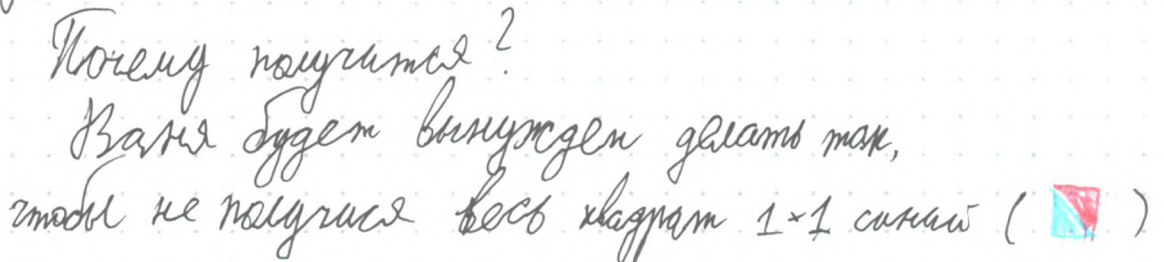 Почему получится?
Ваня будет вынужден делать так,
чтобы не получися весь квадрат 1×1 синий ( )